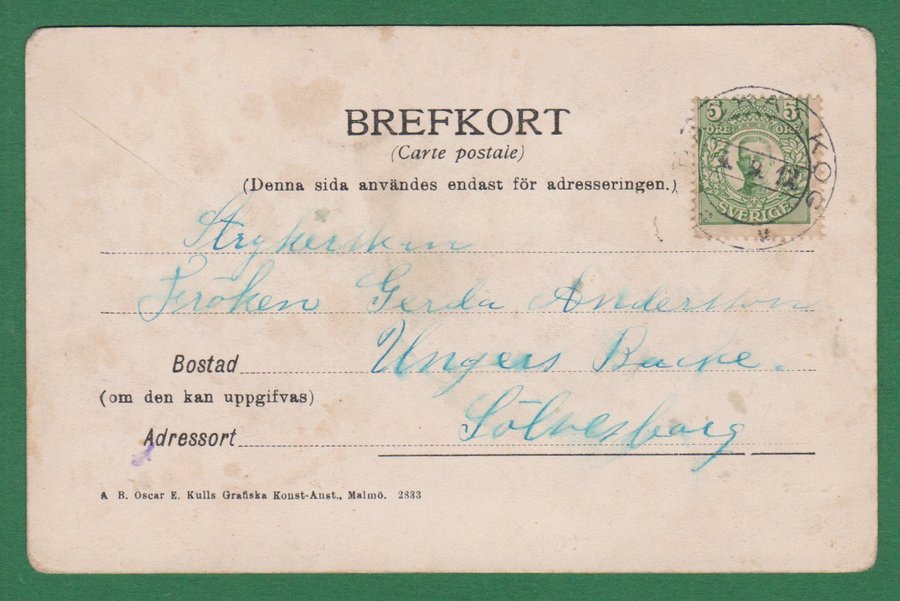 BREFKORT
(Carte postale)
(Denna sida användes endast för adresseringen.)
5 5
ÖRE ÖRE
SVERIGE
Strykerskan
Fröken Gerda Andersson
Bostad Ungers Backe.
(om den kan uppgifvas)
Adressort Sölvesborg
A. B. Oscar E. Kulls Grafiska Konst-Anst., Malmö. 2833